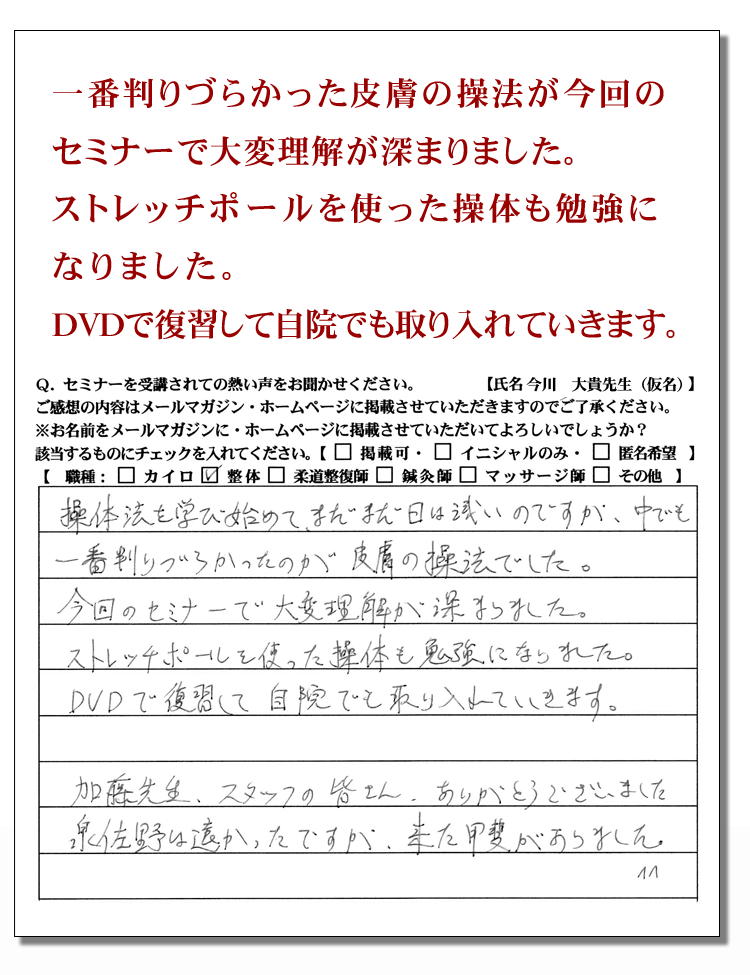 一番判りづらかった皮膚の操法が今回の
セミナーで大変理解が深まりました。
ストレッチポールを使った操体も勉強に
なりました。
DVDで復習して自院でも取り入れていきます。
Q．セミナーを受講されての熱い声をお聞かせください。 【氏名 今川 大貴先生（仮名）】
ご感想の内容はメールマガジン・ホームページに掲載させていただきますのでご了承ください。
※お名前をメールマガジンに・ホームページに掲載させていただいてよろしいでしょうか？
該当するものにチェックを入れてください。【 □ 掲載可・ □ イニシャルのみ・ □ 匿名希望 】
【 職種： □ カイロ ☑ 整体 □ 柔道整復師 □ 鍼灸師 □ マッサージ師 □ その他 】
操体法を学び始めて、まだまだ日は浅いのですが、中でも
一番判りづらかったのが 皮膚の操法でした。
今回のセミナーで大変理解が深まりました。
ストレッチポールを使った操体も勉強になりました。
DVDで復習して 自院でも取り入れていきます。
加藤先生、スタッフの皆さん、ありがとうございました
泉佐野は遠かったですが、来た甲斐がありました。
^^